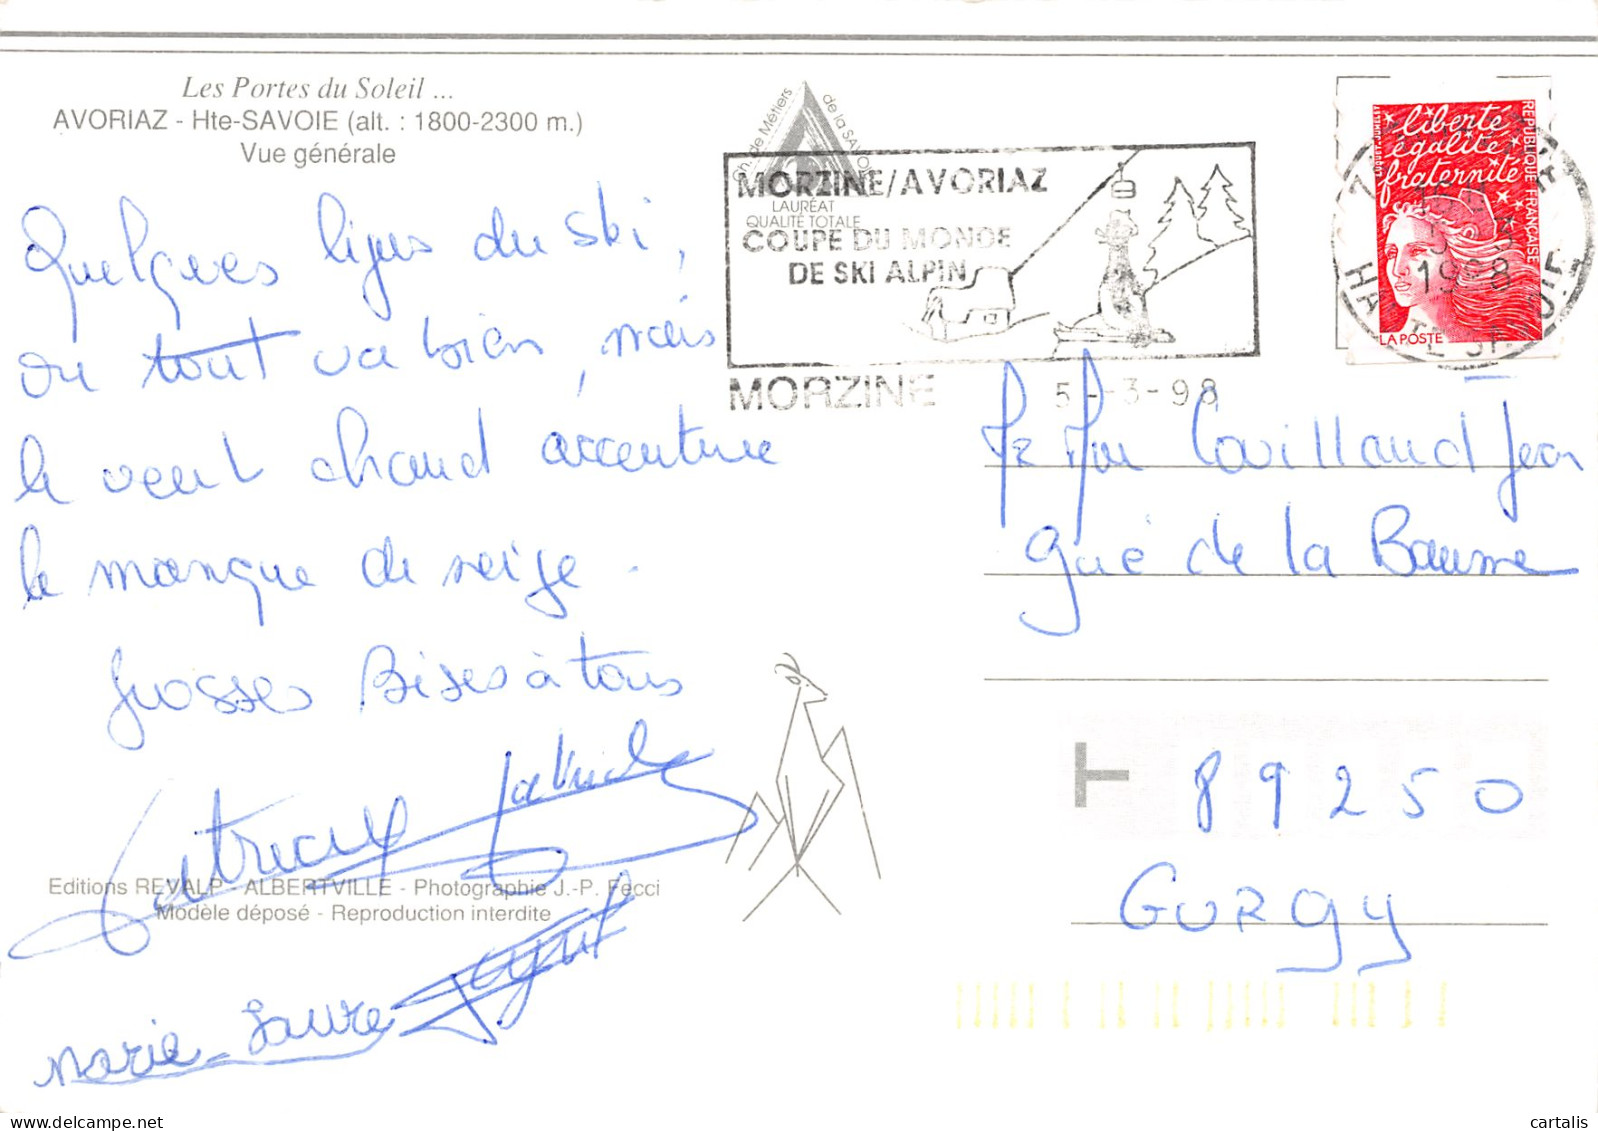 Les Portes du Soleil ...
AVORIAZ - Hte-SAVOIE (alt. : 1800-2300 m.)
Vue générale
Quelques lignes du ski,
où tout va bien, mais
le vent chaud accentue
le manque de neige.
Grosses Bises à tous
Marie-Laure
Editions REVALP - ALBERTVILLE - Photographie J.-P. Fecci
Modèle déposé - Reproduction interdite
Ch. de Métiers de la SAVOIE
LAURÉAT
QUALITÉ TOTALE
MORZINE/AVORIAZ
COUPE DU MONDE
DE SKI ALPIN
MORZINE 5-3-98
liberté
égalité
fraternité
RÉPUBLIQUE FRANÇAISE
LA POSTE
1998
HAUTE SAVOIE
Jean
gué de la Baume
89250
GURGY
cartalis.com